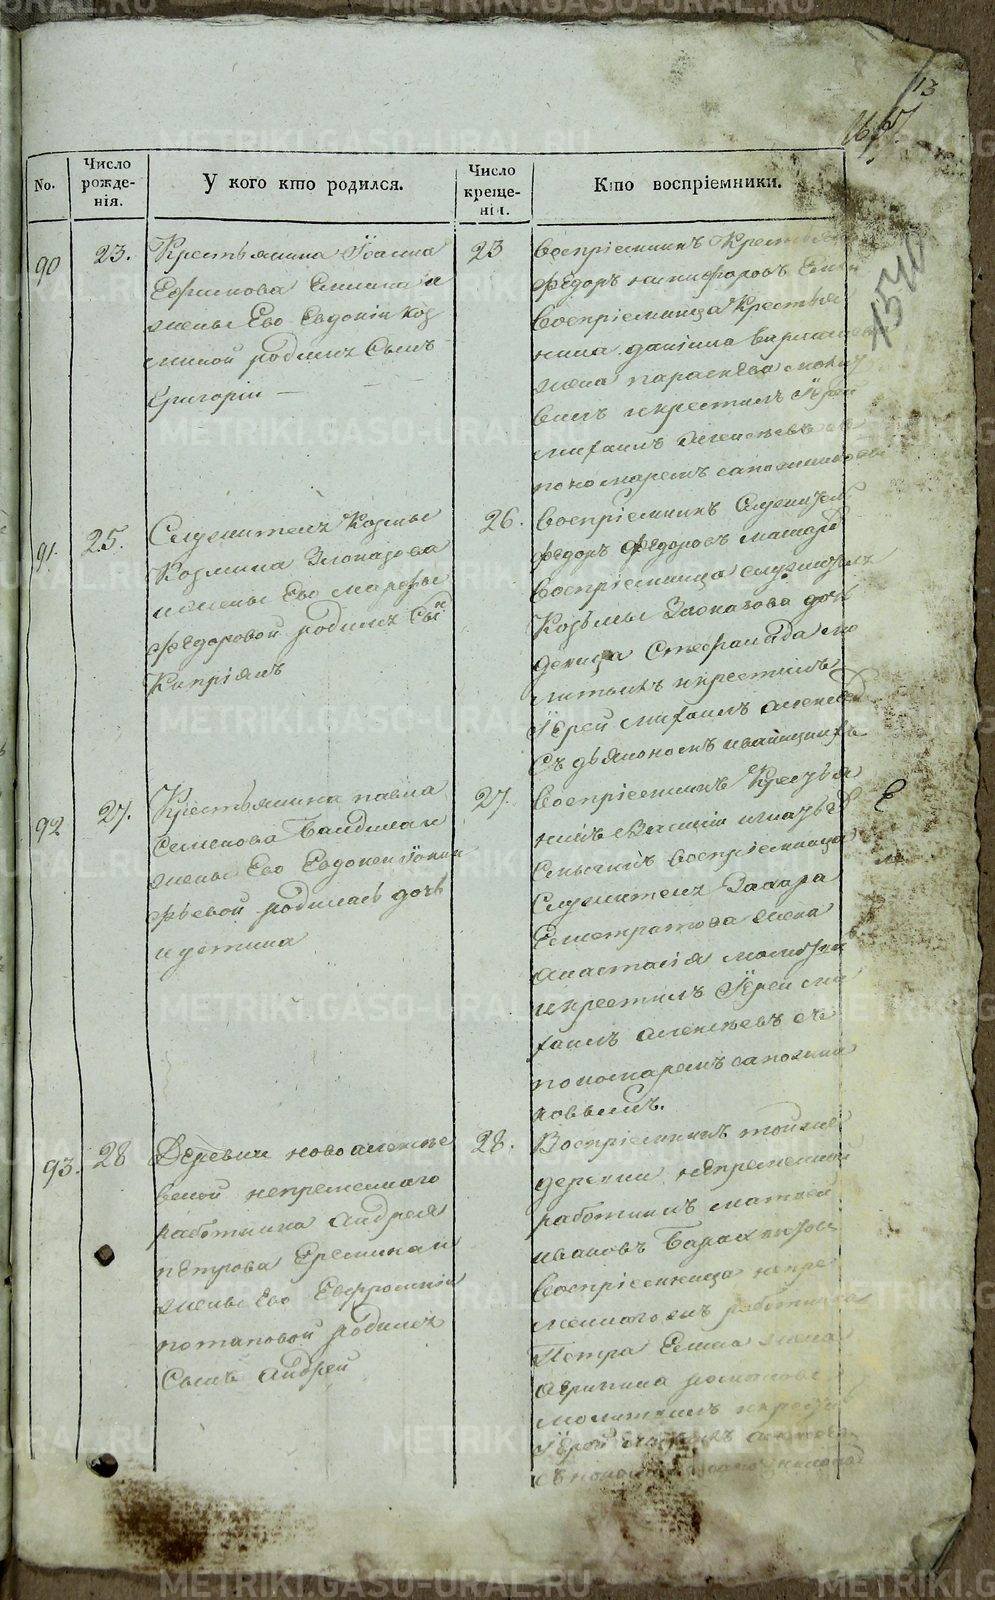 13
No.
Число рожде-нія.
У кого кто родился.
Число креще-нія.
Кто воспріемники.
90
23.
Крестьянина Іоанна
Ефимова Еншина и
жены Ево Евдокіи Коз
миной родился Сынъ
Григорій —
23
Воспріемникъ
Федоръ никифоровъ
Воспріемница Крестья
нина даніила
жена параскева молит
вилъ и крестилъ Іерей
михаилъ алексѣевъ
пономаремъ сапожниковы
91.
25.
Служителя Козмы
Козмина Злоказова
и жены Ево марфы
федоровой родился Сын
Кипріянъ
26.
Воспріемникъ Служитель
федоръ Федоровъ
Воспріемница служителя
Козьмы Злоказова дочь
девица Стефанида мо
литвилъ и крестилъ
Іерей михаилъ алексѣевъ
Съ дьякономъ
92
27.
Крестьянина павла
Семенова и
жены Ево Евдокеи
фьевой родилась дочь
иустина
27.
Воспріемникъ Крестья
нинъ Василій
Воспріемница
Служителя Захара
Елистратова жена
анастасія молитвилъ
и крестилъ Іерей ми
хаилъ алексѣевъ съ
пономаремъ сапожни
ковымъ.
93.
28
Деревни новоалексѣе
вской непременнаго
работника андрея
петрова Еремина и
жены Ево Евфросиніи
потаповой родился
Сынъ андрей
28.
Воспріемникъ той же
деревни непременный
работникъ матвей
ивановъ
Воспріемница непре
меннаго жъ работника
Петра жена
агрипина
молитвилъ и крестилъ
Іерей михаилъ алексѣевъ
METRIKI.GASO-URAL.RU